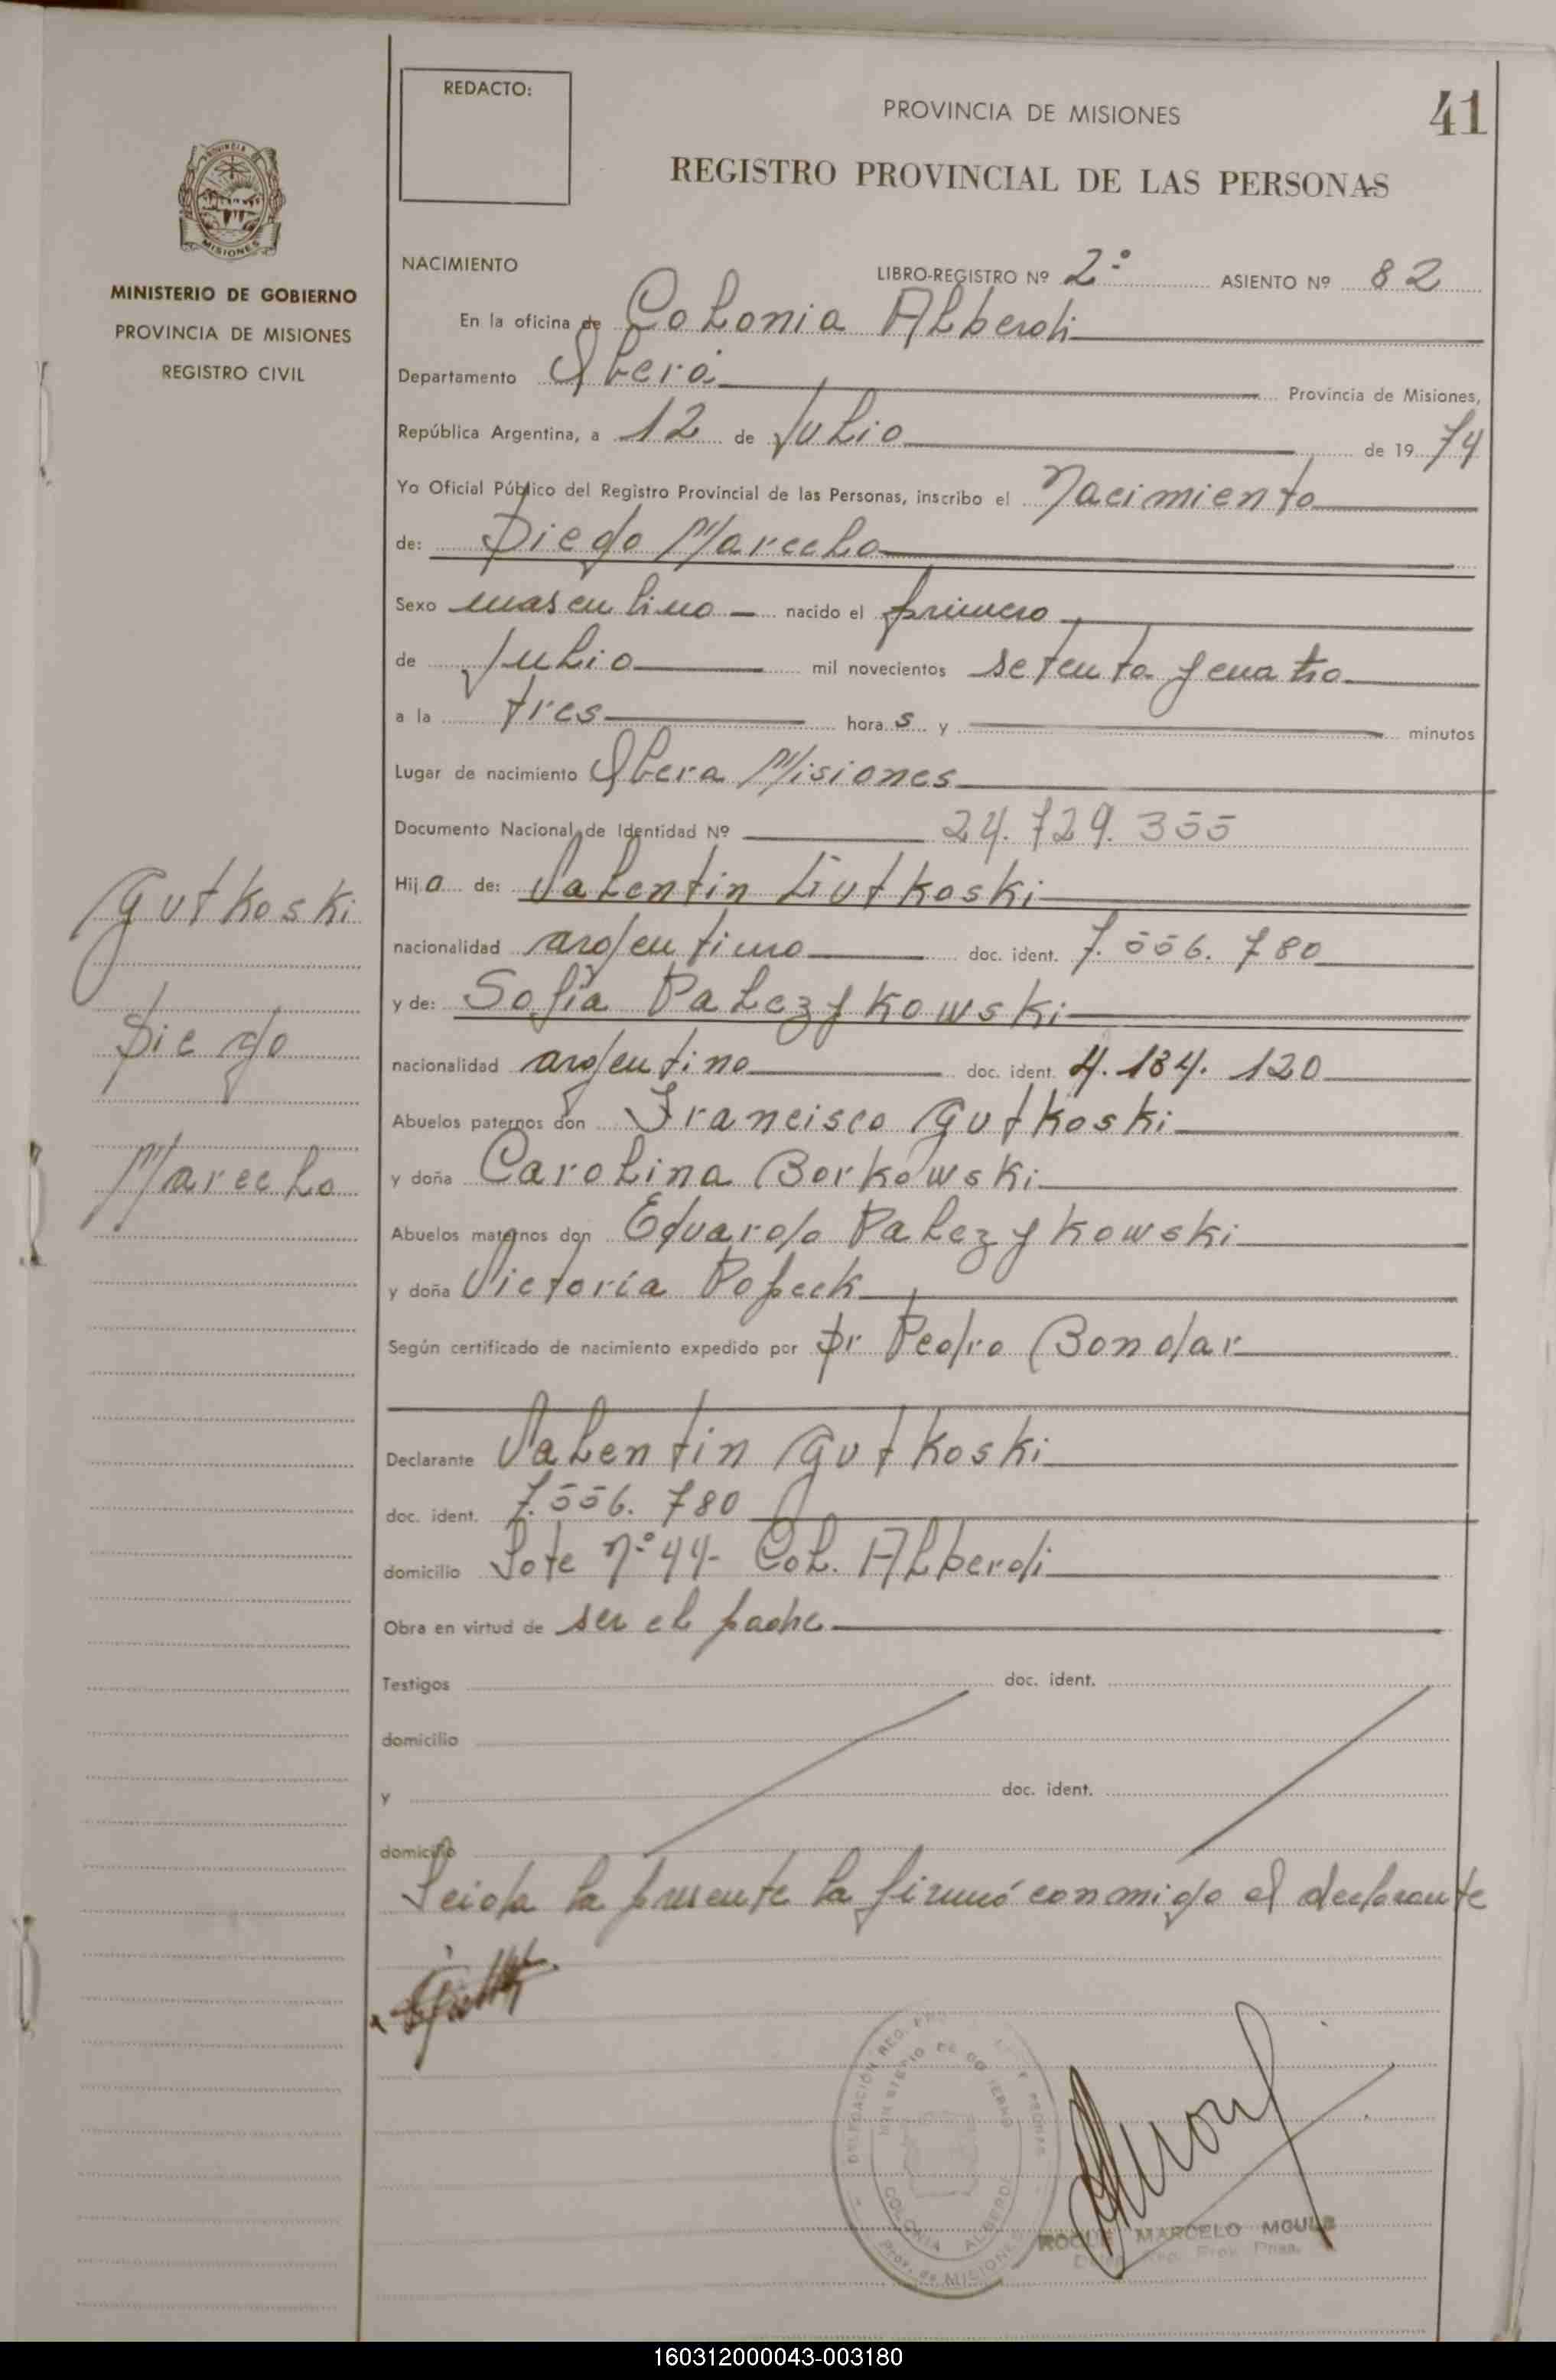 REDACTO:
PROVINCIA DE MISIONES
41
REGISTRO PROVINCIAL DE LAS PERSONAS
PROVINCIA DE
MISIONES
MINISTERIO DE GOBIERNO
PROVINCIA DE MISIONES
REGISTRO CIVIL
NACIMIENTO LIBRO-REGISTRO Nº 2º ASIENTO Nº 82
En la oficina de Colonia Alberdi
Departamento Oberá Provincia de Misiones,
República Argentina, a 12 de Julio de 1974
Yo Oficial Público del Registro Provincial de las Personas, inscribo el Nacimiento
de: Diego Marcelo
Sexo masculino nacido el primero
de Julio mil novecientos setenta y cuatro
a la tres hora s y minutos
Lugar de nacimiento Obera Misiones
Documento Nacional de Identidad Nº 24.729.355
Hijo de: Valentin Gutkoski
nacionalidad argentino doc. ident. 7.556.780
y de: Sofía Palczykowski
nacionalidad argentina doc. ident. 4.184.120
Abuelos paternos don Francisco Gutkoski
y doña Carolina Borkowski
Abuelos maternos don Eduardo Palczykowski
y doña Victoria Popeck
Según certificado de nacimiento expedido por Dr Pedro Bondar
Declarante Valentin Gutkoski
doc. ident. 7.556.780
domicilio Lote nº 44- Col. Alberdi
Obra en virtud de ser el padre
Testigos doc. ident.
domicilio
y doc. ident.
domicilio
Leida la presente la firmó conmigo el declarante
Gutkoski
Diego
Marcelo
COLONIA ALBERDI
Prov. de MISIONES
ROQUE MARCELO
160312000043-003180